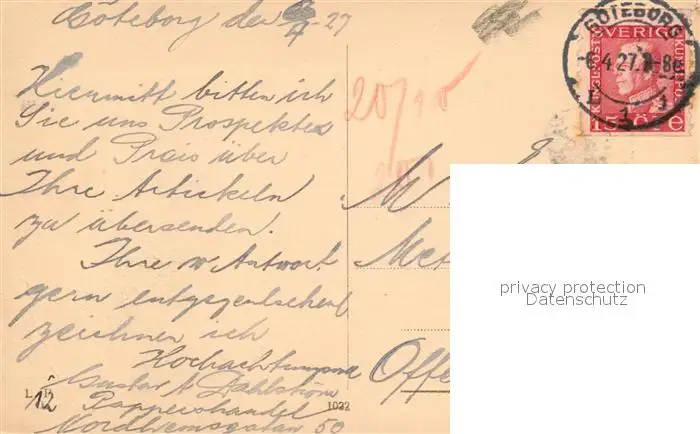 Göteborg den 6/4-27
Hiermitt bitten ich
Sie uns Prospekte
und Prais über
Ihre Artickeln
zu übersenden.
Ihre w Antwort
gern entgegensehend
zeichner ich
Hochachtungsvoll
Gustav A Dahlström
Pappershandel
Nordhemsgatan 50
L. P.
12
1022
20/
M
Met
Offe
GÖTEBORG
SVERIGE
6.4.27
15 ÖRE
privacy protection
Datenschutz